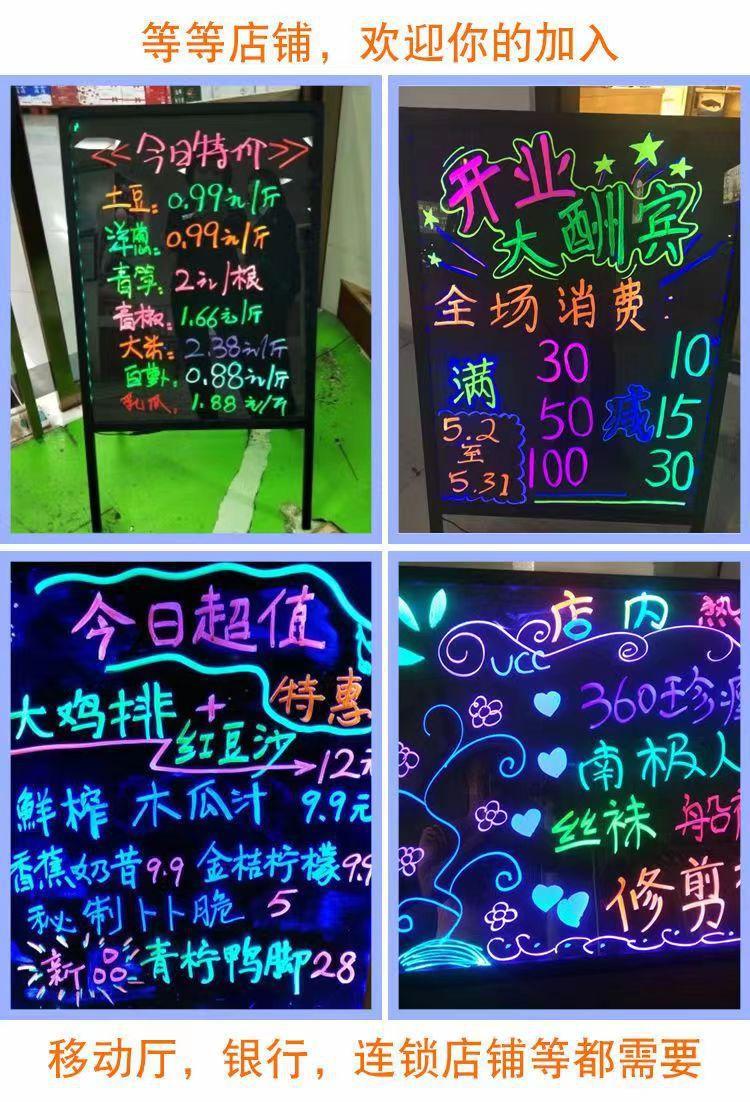 等等店铺，欢迎你的加入
<<今日特价>>
土豆：0.99元/斤
洋葱：0.99元/斤
青笋：2元/根
青椒：1.66元/斤
大米：2.38元/斤
白萝卜：0.88元/斤
乳瓜：1.88元/斤
开业
大酬宾
全场消费：
满 30 10
50 减 15
100 30
5.2
至
5.31
今日超值
特惠
大鸡排+
红豆沙
12元
鮮榨 木瓜汁 9.9元
香蕉奶昔9.9 金桔柠檬9.9
秘制卜卜脆 5
新品 青柠鸭脚28
店内熱
UCC
360珍
南极人
丝袜 船
修剪
移动厅，银行，连锁店铺等都需要